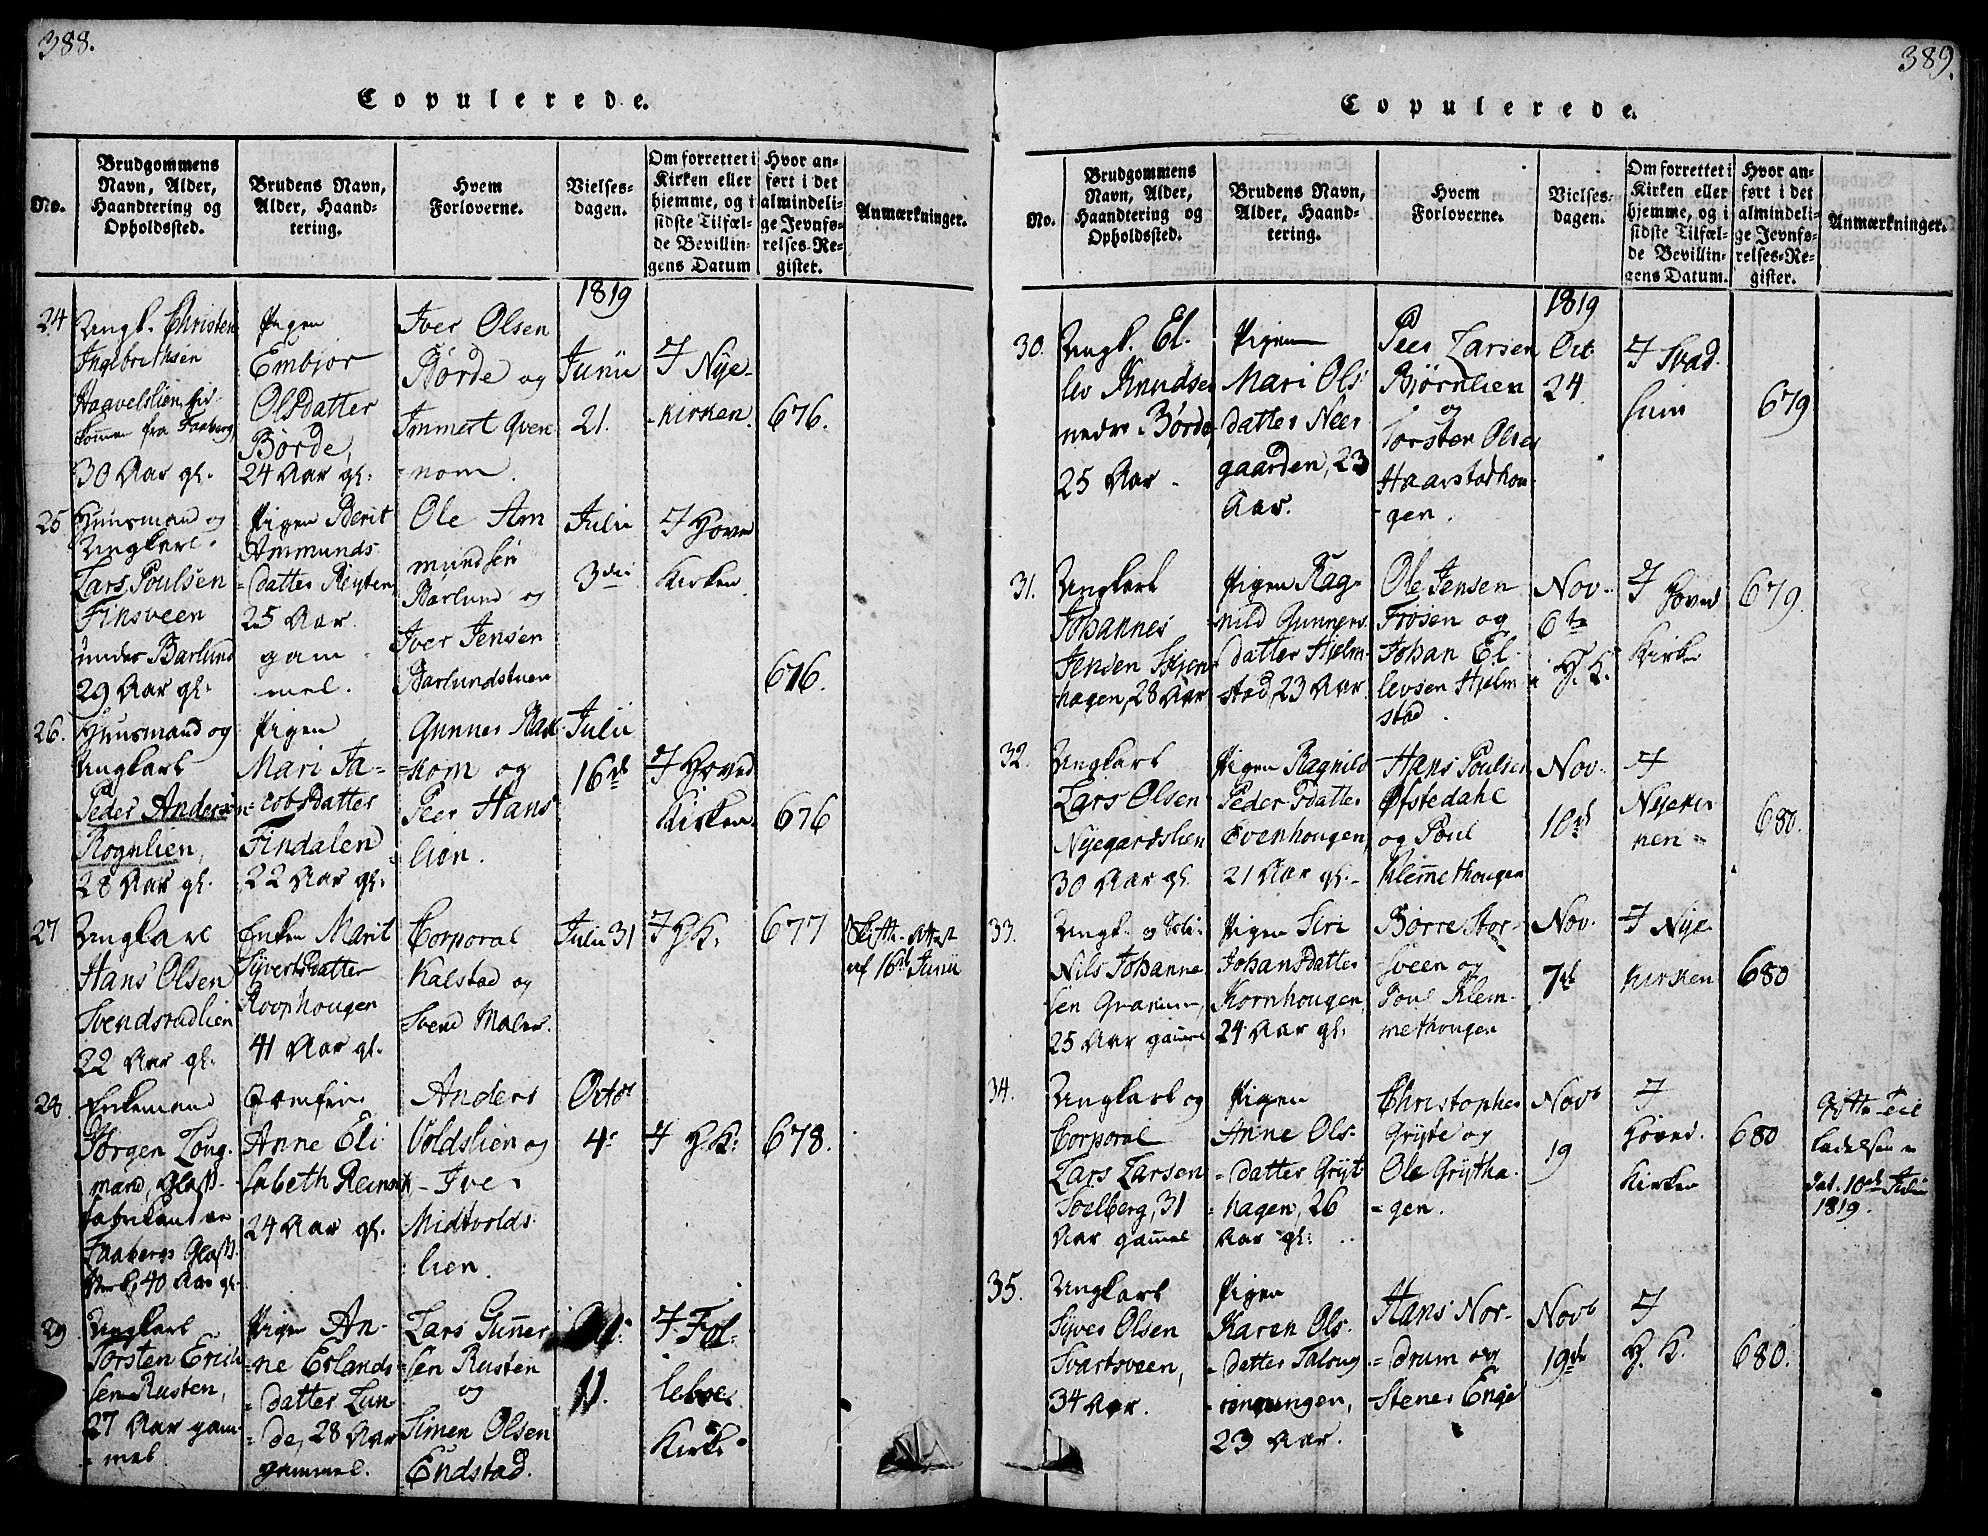 388.
Copulerede.
No.
Brudgommens
Navn, Alder,
Haandtering og
Opholdssted.
Brudens Navn,
Alder, Haand-
tering.
Hvem
Forloverne.
Vielses-
dagen.
Om forrettet i
Kirken eller
hjemme, og i
sidste Tilfæl-
de Bevillin-
gens Datum
Hvor an-
ført i det
almindeli-
ge Jevnfø-
relses-Re-
gister.
Anmærkninger.
1819
24
Ungk. Christen
Ingebrethsen
Haavelslien,
fra Faaberg,
30 Aar gl.
Pigen
Embjør
Olsdatter
Børde,
24 Aar gl:
Iver Olsen
Børde og
Immert Qven
=nom.
Junii
21.
I Nye-
kirken.
676.
25
Huusmand og
Ungkarl.
Lars Poulsen
Finsveen
under Barlund
29 Aar gl.
Pigen Berit
Ammunds
=datter Reyten
25 Aar
gam
mel.
Ole Am
mundsen
Barlund og
Iver Jensen
Barlundstuen
Julii
3die
I Hoved
Kirken
676.
26.
Huusmand og
Ungkarl
Peder Anders
Rognlien,
28 Aar gl.
Pigen
Mari Ja-
=cobsdatter
Findalen
22 Aar gl.
Gunner Bak
=kom og
Peer Hans
lien.
Julii
16de
I Hoved
Kirken
676
27
Ungkarl
Hans Olsen
Svendsrudlien
22 Aar gl.
Enken Marit
Syvertsdatter
Roophougen
41 Aar gl.
Corporal
Kalstad og
Svend Maler.
Julii 31
I HK:
677
Skifte-Attest
af 16de Junii
28
Enkemand
Jørgen Long-
mand, Glass-
fabrikant
Faabergs Glass
40 Aar gl.
Jomfru
Anne Eli
sabeth
24 Aar gl.
Anders
Voldslien og
Iver
Midtvolds
lien.
Octbr
4.
I HK:
678.
29
Ungkarl
Torsten Erich
sen Rusten,
27 Aar gam-
mel
Pige An-
ne Erlands
=datter Lun
=de, 28 Aar
gammel.
Lars Gunner
=sen Rusten
og
Simen Olsen
Endstad.
11.
I Fol-
leboe
Kirke
389.
Copulerede.
No.
Brudgommens
Navn, Alder,
Haandtering og
Opholdssted.
Brudens Navn,
Alder, Haand-
tering.
Hvem
Forloverne.
Vielses-
dagen.
Om forrettet i
Kirken eller
hjemme, og i
sidste Tilfæl-
de Bevillin-
gens Datum.
Hvor an-
ført i det
almindeli-
ge Jevnfø-
relses-Re-
gister.
Anmærkninger.
1819
30.
Ungk. El-
lev Knudsen
nedre Børde
25 Aar
Pigen
Mari Ols
datter Neer
gaarden, 23
Aar.
Peer Larsen
Bjørnlien
og
Torsten Olsen
Haarstadhou-
gen.
Oct.
24
I Svad
sum
679
31.
Ungkarl
Johannes
Jensen
hagen, 28 Aar
Pigen Rag-
nild Gunners
datter Hjelm-
stad, 23 Aar
Ole Jensen
Frøsen og
Johan El-
levsen Hjelm
stad.
Nov.
6te
i H. K.
I Hoved
Kirke
679.
32.
Ungkarl
Lars Olsen
Nyegardslien
30 Aar gl.
Pigen Ragnild
Pedersdatter
Evenhougen,
21 Aar gl.
Hans Poulsen
Øfstedahl
og Poul
Klemethougen
Nov.
10de
I
Nyekir
ken
680.
33.
Ungk. og
Nils Johanne
sen
25 Aar gammel
Pigen Siri
Johansdatter
Kornhougen,
24 Aar gl.
Børre Stor-
sveen og
Poul Klem-
methougen
Nov.
7de
I Nye
kirken
680
34.
Ungkarl og
Corporal
Lars Larsen
Soelberg, 31
Aar gammel
Pigen
Anne Ols-
=datter Gryt
=hagen, 26
Aar gl:
Christopher
Gryte og
Ole Grytha-
=gen.
Novb
19
I
Hoved
Kirken
680
Gifte-Til
ladelsen
dat. 10de Julii
1819.
35.
Ungkarl
Syver Olsen
Svartsveen,
34 Aar.
Pigen
Karen Ols-
datter
23 Aar.
Hans Nor-
=drum og
Stener Enge
Novb
19de
I
H. K.
680.